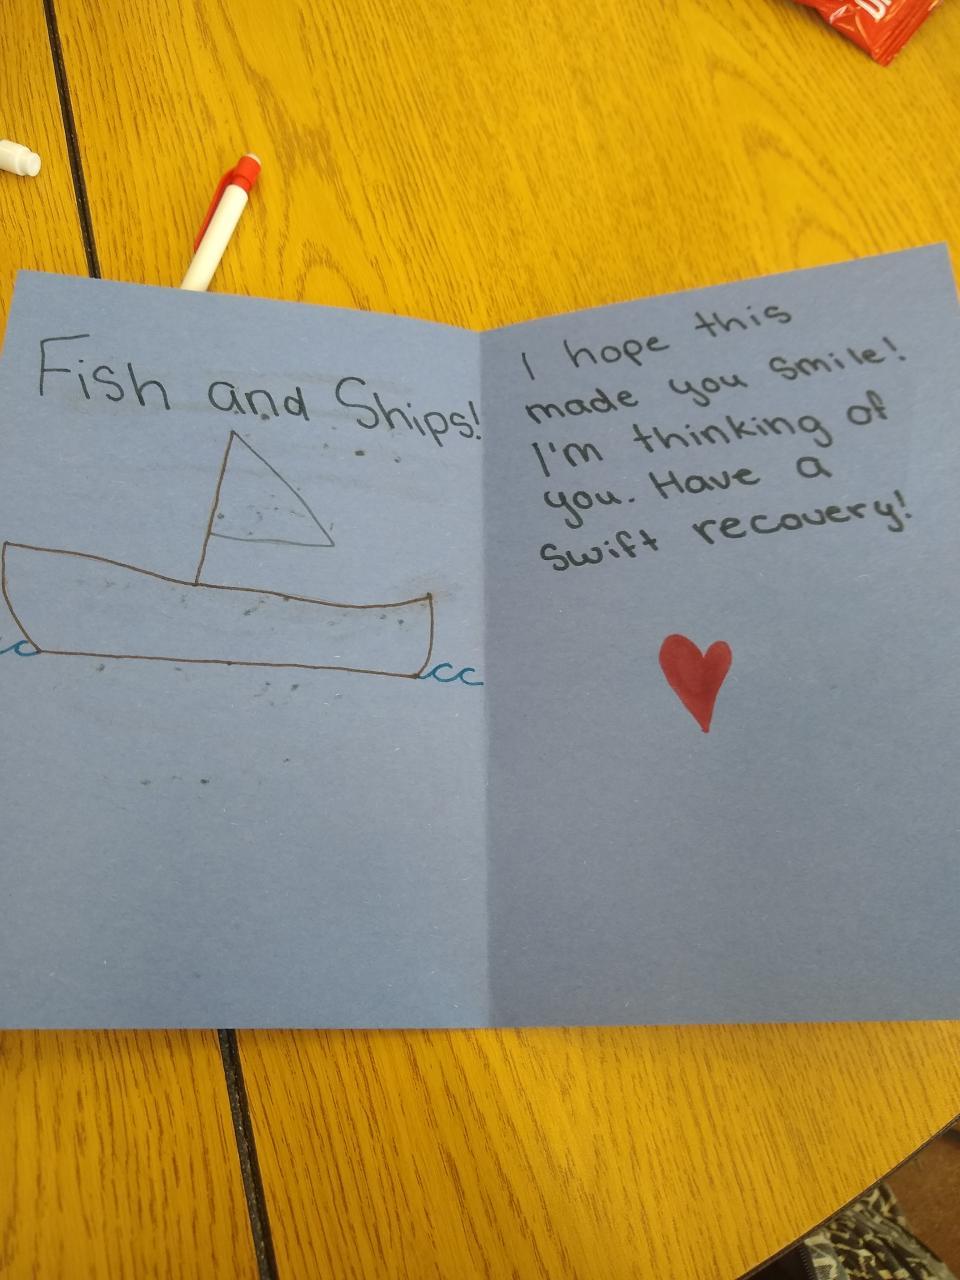 Fish and Ships!
I hope this
made you smile!
I'm thinking of
you. Have a
swift recovery!